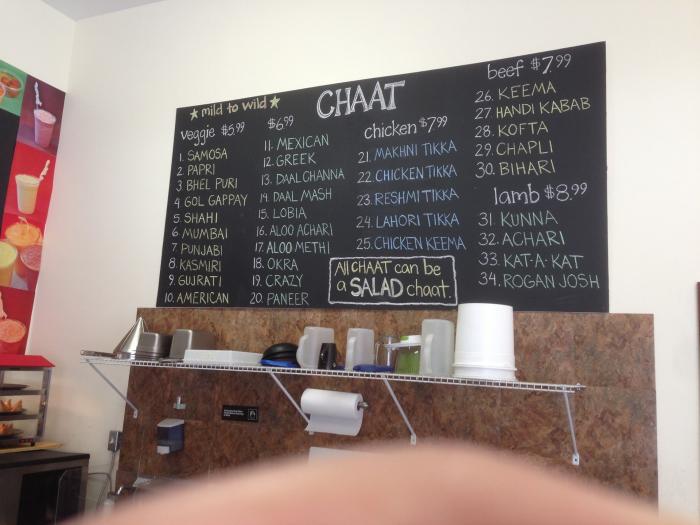 ★ mild to wild ★
CHAAT
veggie $5.99
1. SAMOSA
2. PAPRI
3. BHEL PURI
4. GOL GAPPAY
5. SHAHI
6. MUMBAI
7. PUNJABI
8. KASMIRI
9. GUJRATI
10. AMERICAN
$6.99
11. MEXICAN
12. GREEK
13. DAAL CHANNA
14. DAAL MASH
15. LOBIA
16. ALOO ACHARI
17. ALOO METHI
18. OKRA
19. CRAZY
20. PANEER
chicken $7.99
21. MAKHNI TIKKA
22. CHICKEN TIKKA
23. RESHMI TIKKA
24. LAHORI TIKKA
25. CHICKEN KEEMA
All CHAAT can be
a SALAD chaat.
beef $7.99
26. KEEMA
27. HANDI KABAB
28. KOFTA
29. CHAPLI
30. BIHARI
lamb $8.99
31. KUNNA
32. ACHARI
33. KAT-A-KAT
34. ROGAN JOSH